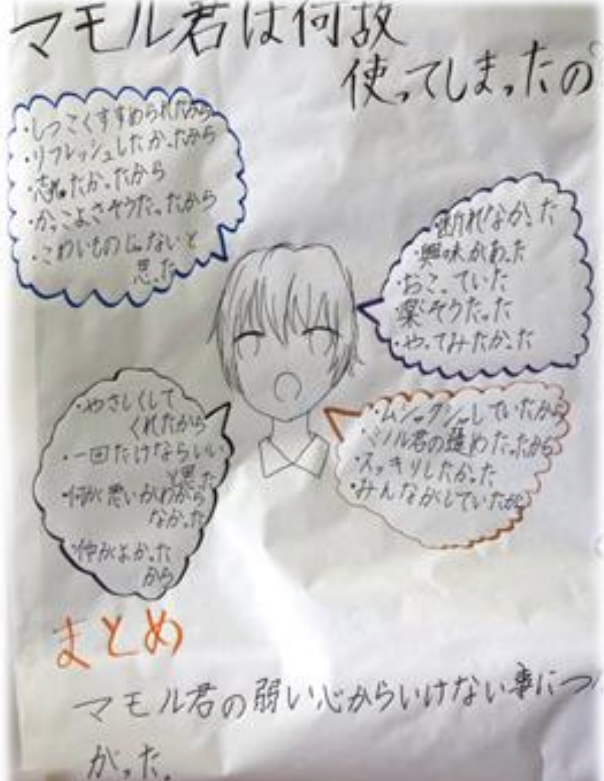 マモル君は何故
使ってしまったの
・しつこくすすめられたから
・リフレッシュしたかったから
・忘れたかったから
・かっこよさそうだったから
・こわいものじゃないと
思った
・断れなかった
・興味があった
・おこっていた
・楽そうだった
・やってみたかった
・やさしくして
くれたから
・一回だけならいい
と思った
・何が悪いかわから
なかった
・仲がよかった
から
・ムシャクシャしていたから
・ミノル君の薦めだったから
・スッキリしたかった
・みんながしていたから
まとめ
マモル君の弱い心からいけない事につ
がった。